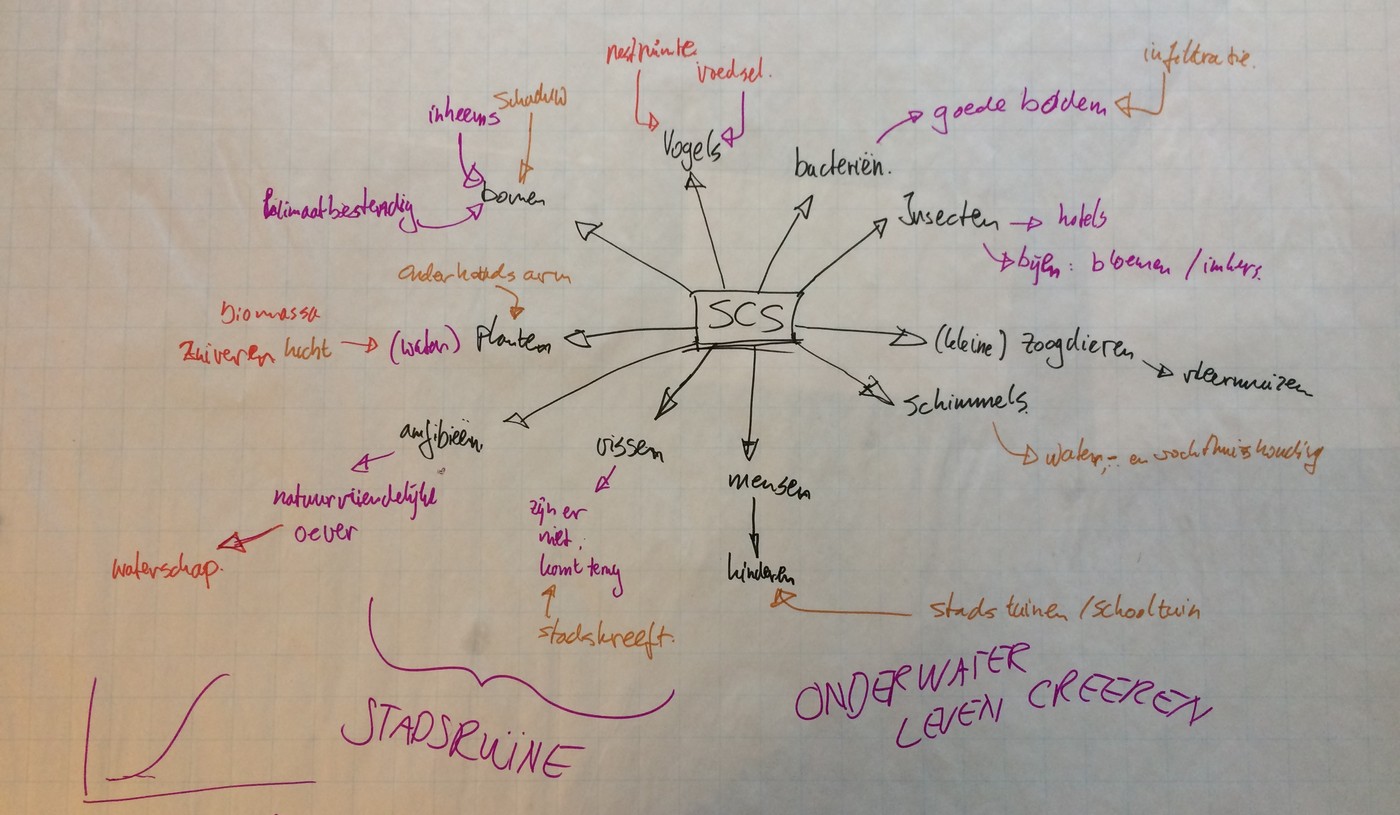 nestruimte
voedsel.
infiltratie.
inheems
schaduw
goede bodem
Vogels
bacteriën.
klimaatbestendig
bomen
Insecten
hotels
bijen: bloemen / imkers.
onderhouds arm
biomassa
zuiveren lucht
(water) planten
SCS
(kleine) zoogdieren
vleermuizen
schimmels.
amfibieën.
vissen
water,- en vochthuishouding
mensen
natuurvriendelijke
oever
zijn er
niet,
komt terug
waterschap.
kinderen
stads tuinen / schooltuin
stadskreeft.
STADSRUÏNE
ONDERWATER
LEVEN CREEREN